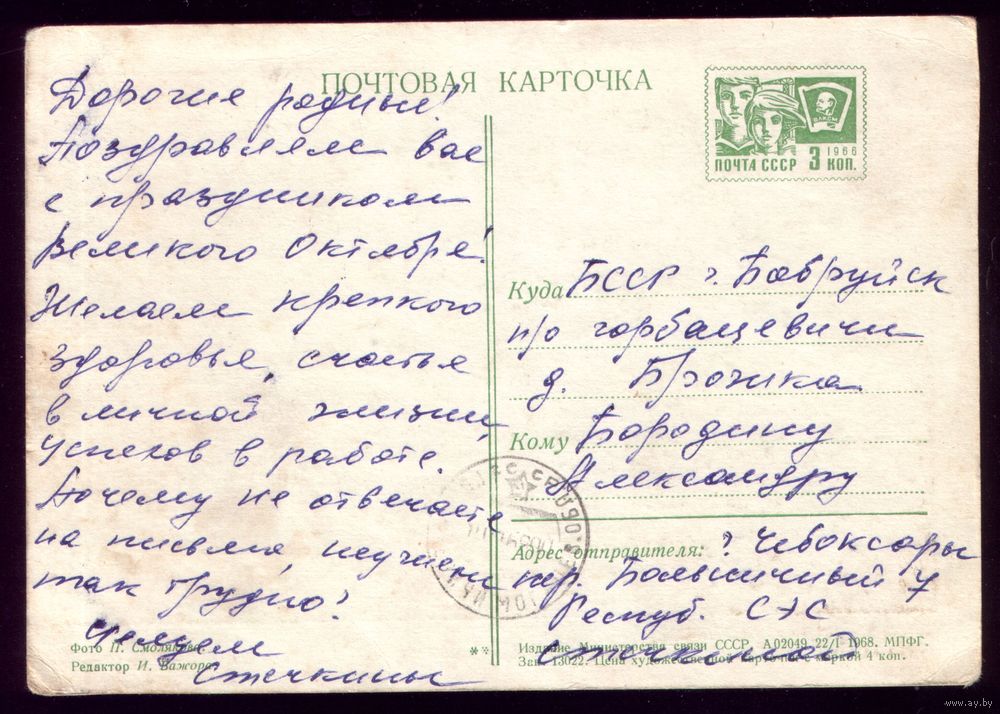 ПОЧТОВАЯ КАРТОЧКА
Дорогие родные!
Поздравляем вас
с праздником
Великого Октября!
Желаем крепкого
здоровья, счастья
в личной жизни,
успехов в работе.
Почему не отвечаете
на письма, неужели
так трудно?
Целуем
Стечкины
ВЛКСМ
1966
ПОЧТА СССР 3 КОП.
Куда БССР г. Бобруйск
п/о Горбацевичи
д. Брожка
Кому Бородину
Александру
Адрес отправителя: г. Чебоксары
пер. Больничный 4
Респуб. СЭС
Фото П. Смолякова.
Редактор И. Важоров.
**
Издание Министерства связи СССР. А 02049. 22/I 1968. МПФГ.
Зак. 13022. Цена художественной карточки с маркой 4 коп.
www.ay.by